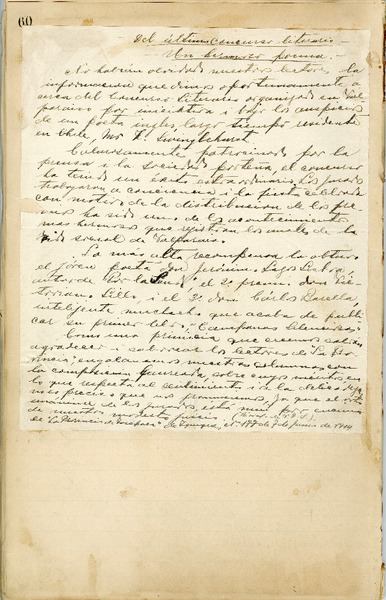 60
Del último Concurso literario.—
Un hermoso poema.—
No habrán olvidado nuestros lectores, la
informacion que dimos oportunamente a
cerca del Concurso Literario organizado en Val
paraiso por iniciativa i bajo los auspicios
de un poeta ingles, largo tiempo residente
en Chile, Mr
Calurosamente patrocinado por la
prensa i la sociedad porteña, el concurso
ha tenido un éxito extraordinario. Los jurados
trabajaron a conciencia i la fiesta celebrada
con motivo de la distribucion de los pre
mios ha sido uno de los acontecimientos
mas hermosos que registran los anales de la
vida social de Valparaiso.
La mas alta recompensa la obtuvo
el jóven poeta don Jerónimo Lagos Lisboa,
autor de el 2º premio don
Lillo, i el 3º don Cárlos Barella,
intelijente muchacho que acaba de publi
car su primer libro, "Campanas Silenciosas"
Como una primicia que creemos sabrán
agradecer i saborear los lectores de La Pro
vincia, engalanamos nuestras columnas con
la composicion laureada, sobre cuyos méritos en
lo que respecta al sentimiento i a la delicadeza
no es preciso que nos pronunciemos, ya que el
de los jurados, está mui por encima
de nuestro modesto juicio.
"La Provincia de Tarapacá" de Iquique, de Junio de 1914